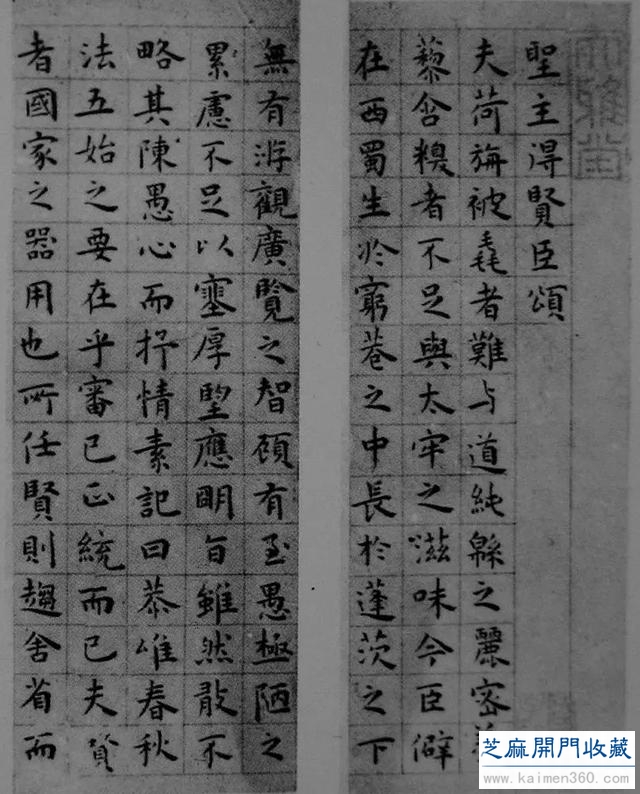 聖主淂賢臣頌
夫荷旃被毳者難与道純緜之麗密
藜含糗者不足與太牢之滋味今臣僻
在西蜀生於窮巷之中長於蓬茨之下
無有游觀廣覽之智頋有至愚極陋之
累慮不足以塞厚望應明旨雖然敢不
略其陳愚心而抒情素記曰恭惟春秋
法五始之要在乎審己正統而已夫賢
者國家之器用也所任賢則趨舍省而
芝麻開門收藏
www.kaimen360.com